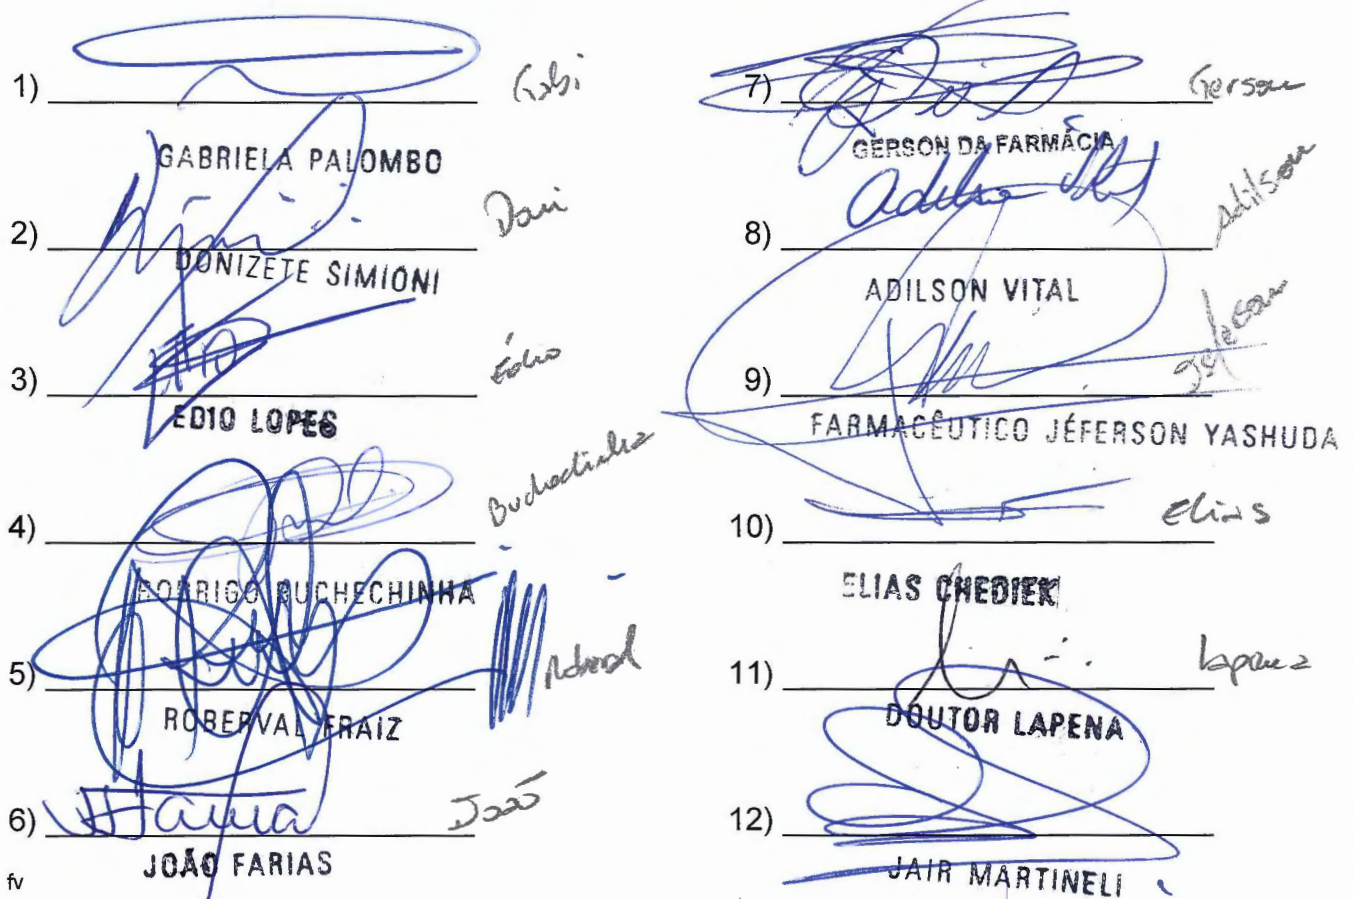 1) Gabi
GABRIELA PALOMBO
2) Doni
DONIZETE SIMIONI
3) Édio
EDIO LOPES
4) Buchechinha
RODRIGO BUCHECHINHA
5) Roberval
ROBERVAL FRAIZ
6) Farias João
JOÃO FARIAS
fv
7) Gerson
GERSON DA FARMÁCIA
Adilson Vital
8) Adilson
ADILSON VITAL
9) Jéferson
FARMACÊUTICO JÉFERSON YASHUDA
10) Elias
ELIAS CHEDIEK
11) Lapena
DOUTOR LAPENA
12)
JAIR MARTINELI